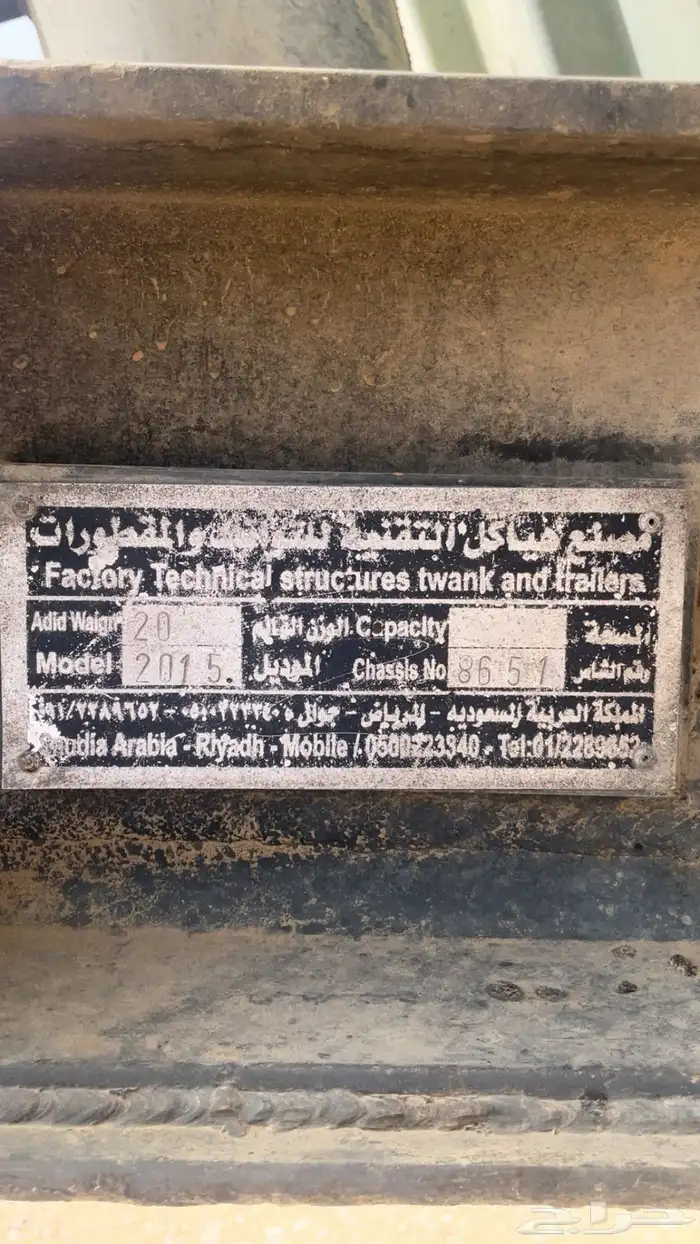 مصنع هياكل التقنية للتوانك والمقطورات
Factory Technical structures twank and trailers
Adid Waign 20 الوزن القائم Capacity السعة
Model 2015 الموديل Chassis No 8651 رقم الشاص
المملكة العربية السعودية - الرياض - جوال
Arabia - Riyadh - Mobile / 0500223340 - Tel:01/2289652
حراج